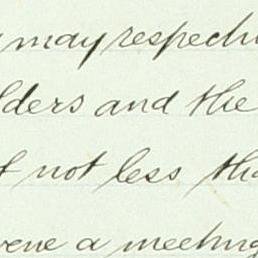 may respecti
lders and the
f not less tha
vene a meeting